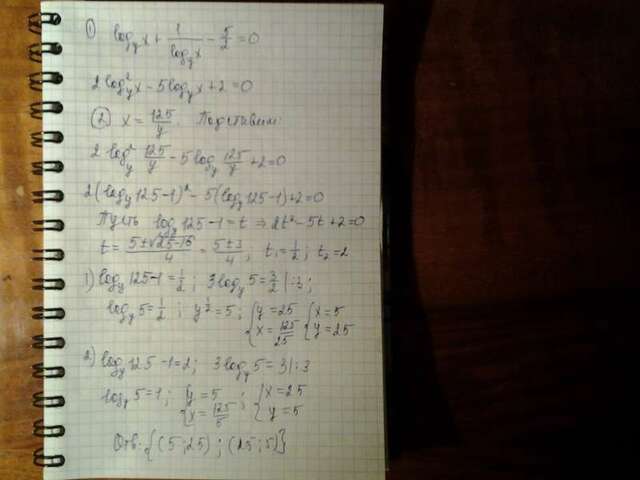 ① log_y x + 1/(log_y x) − 5/2 = 0
2 log²_y x − 5 log_y x + 2 = 0
② x = 125/y. Подставим:
2 log²_y 125/y − 5 log_y 125/y + 2 = 0
2(log_y 125 − 1)² − 5(log_y 125 − 1) + 2 = 0
Пусть log_y 125 − 1 = t ⇒ 2t² − 5t + 2 = 0
t = (5 ± √(25−16))/4 = (5 ± 3)/4; t₁ = 1/2; t₂ = 2
1) log_y 125 − 1 = 1/2; 3 log_y 5 = 3/2 | :3;
log_y 5 = 1/2; y^(1/2) = 5; { y = 25 x = 125/25 { x = 5 y = 25
2) log_y 125 − 1 = 2; 3 log_y 5 = 3 | :3
log_y 5 = 1; { y = 5 x = 125/5 ; { x = 25 y = 5
Отв. {(5; 25); (25; 5)}